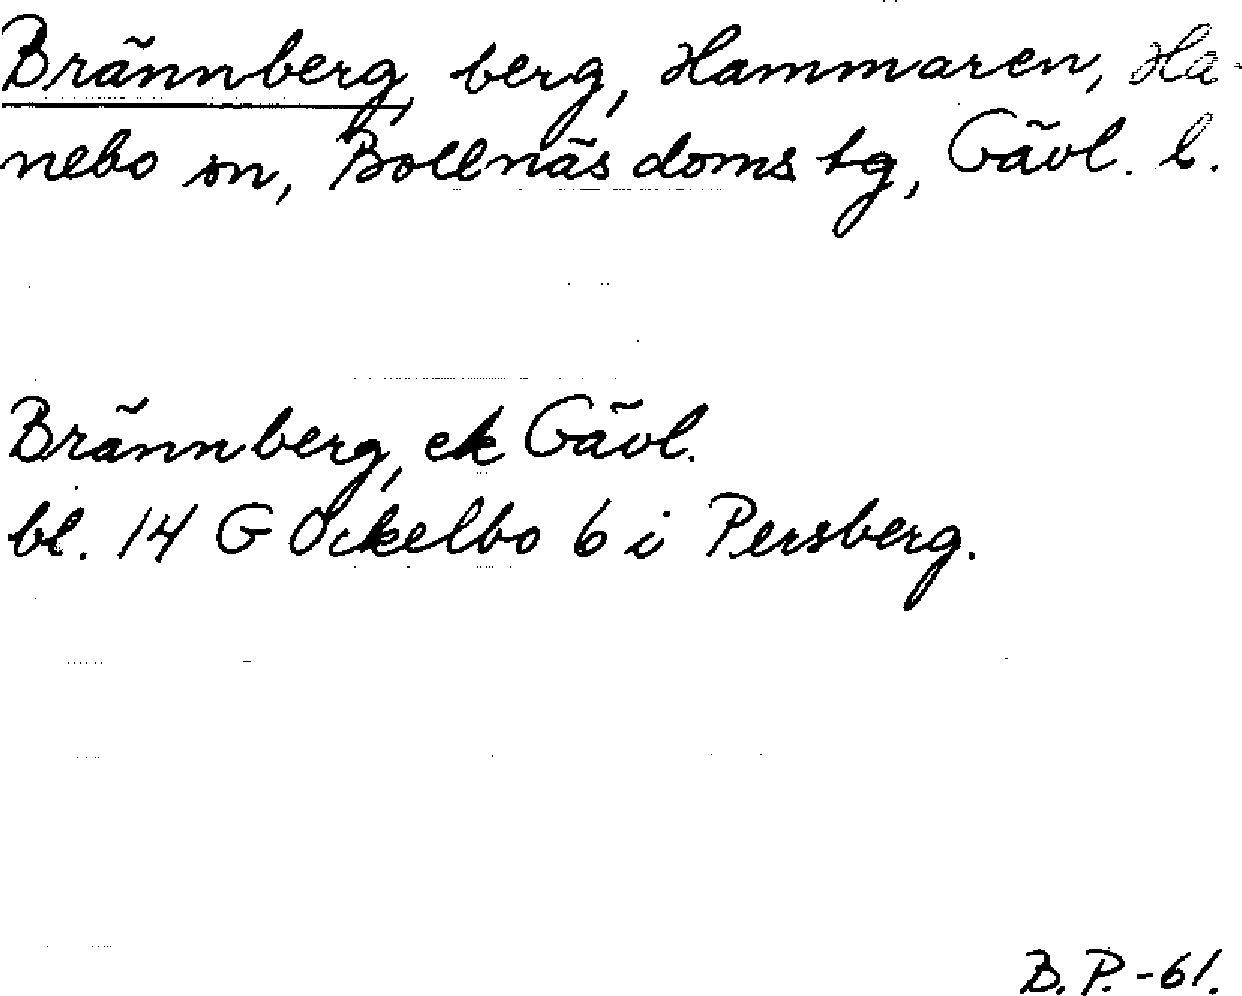 Brännberg, berg, Hammaren, Ha-
nebo sn, Bollnäs doms tg, Gävl. l.
Brännberg, ek Gävl.
bl. 14 G Ockelbo 6 i Persberg.
B. P. -61.